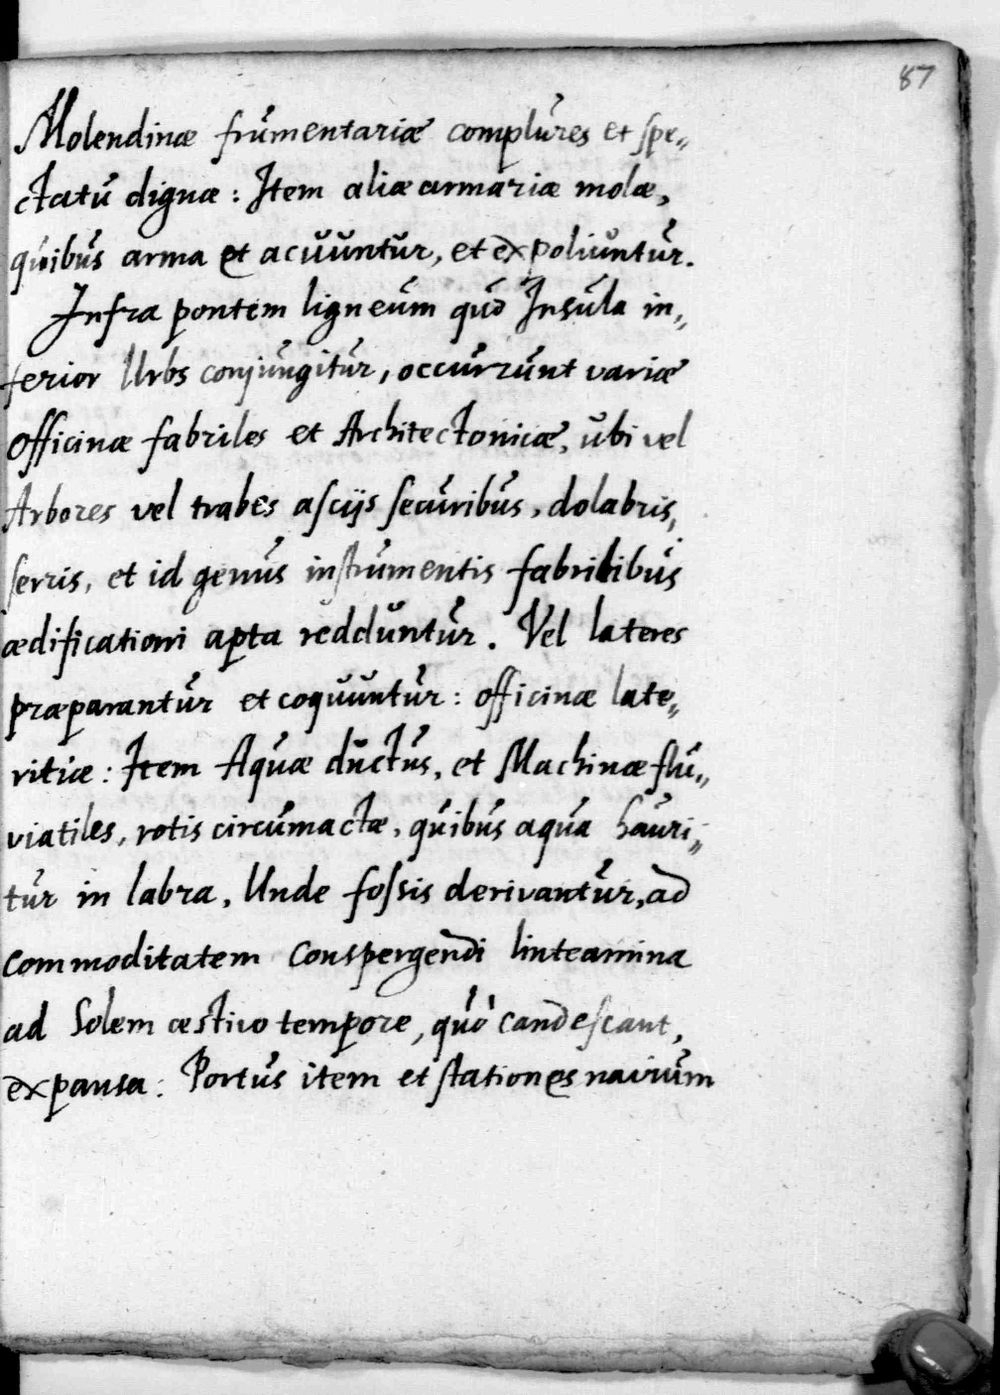 87
Molendinæ frumentariæ complures et spe„
ctatu dignæ: Item aliæ armariæ molæ,
quibus arma et acuuntur, et expoliuntur.
Infra pontem ligneum quo Insula in„
ferior Urbs conjungitur, occurrunt variæ
officinæ fabriles et Architectonicæ, ubi vel
Arbores vel trabes ascijs securibus, dolabris,
serris, et id genus instrumentis fabrilibus
ædificationi apta redduntur. Vel lateres
præparantur et coquuntur: officinæ late„
ritiæ: Item Aquæ ductus, et Machinæ flu„
viatiles, rotis circumactæ, quibus aqua hauri„
tur in labra, Unde fossis derivantur, ad
commoditatem conspergendi linteamina
ad Solem æstivo tempore, quò candescant,
expansa: Portus item et stationes navium